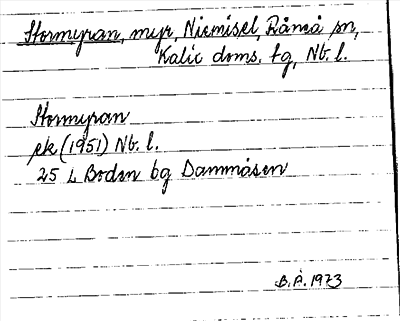 Stormyran, myr, Niemisel, Råneå sn,
Kalix doms. tg, Nb. l.
Stormyran
ek (1951) Nb. l.
25 L Boden bg Dammåsen
B.Å. 1973